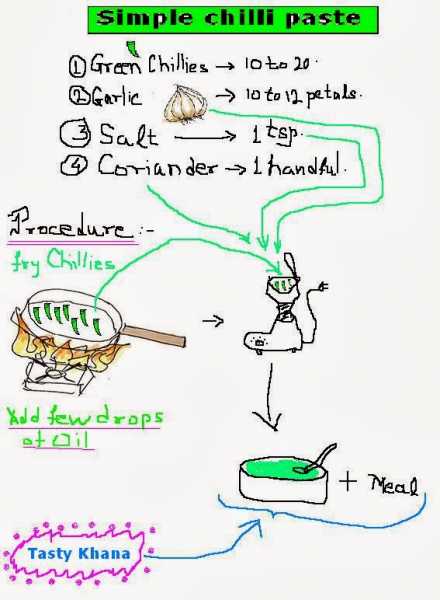 Simple chilli paste
① Green Chillies → 10 to 20.
② Garlic → 10 to 12 petals.
③ Salt → 1 tsp.
④ Coriander → 1 handful.
Procedure :-
fry Chillies
Add few drops
of Oil
+ Meal
Tasty Khana